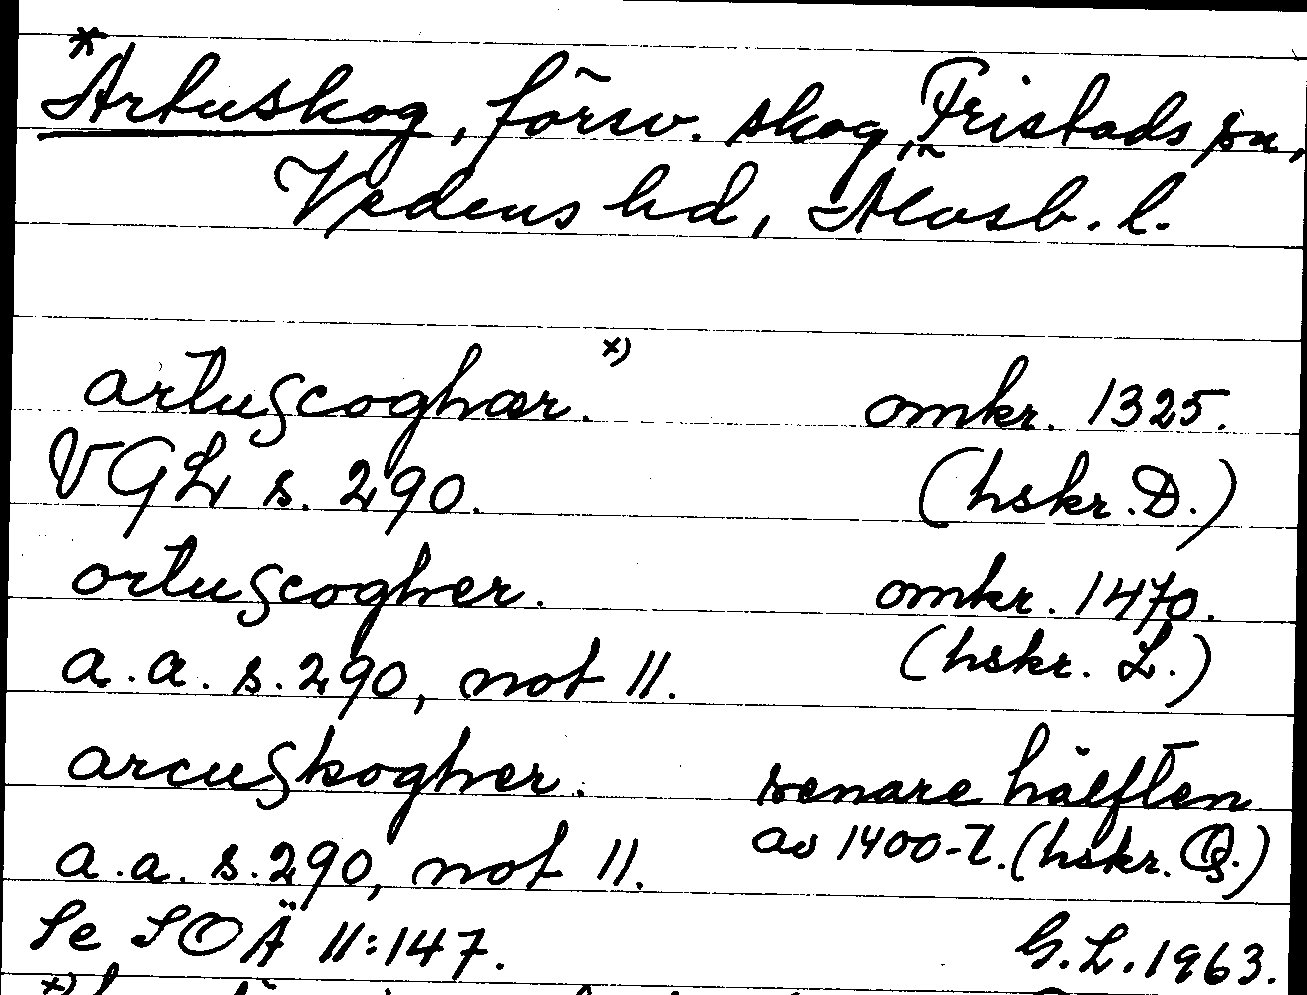 *Artuskog, försv. skog, Fristads sn,
Vedens hd, Älvsb. l.
artuscoghær. x) omkr. 1325.
VGL s. 290. (hskr. D.)
ortuscogher. omkr. 1470.
a.a. s. 290, not 11. (hskr. L.)
arcuskogher. senare hälften
a.a. s. 290, not 11. av 1400-t. (hskr. Q.)
Se SOÄ 11:147. G.L. 1963.
x)